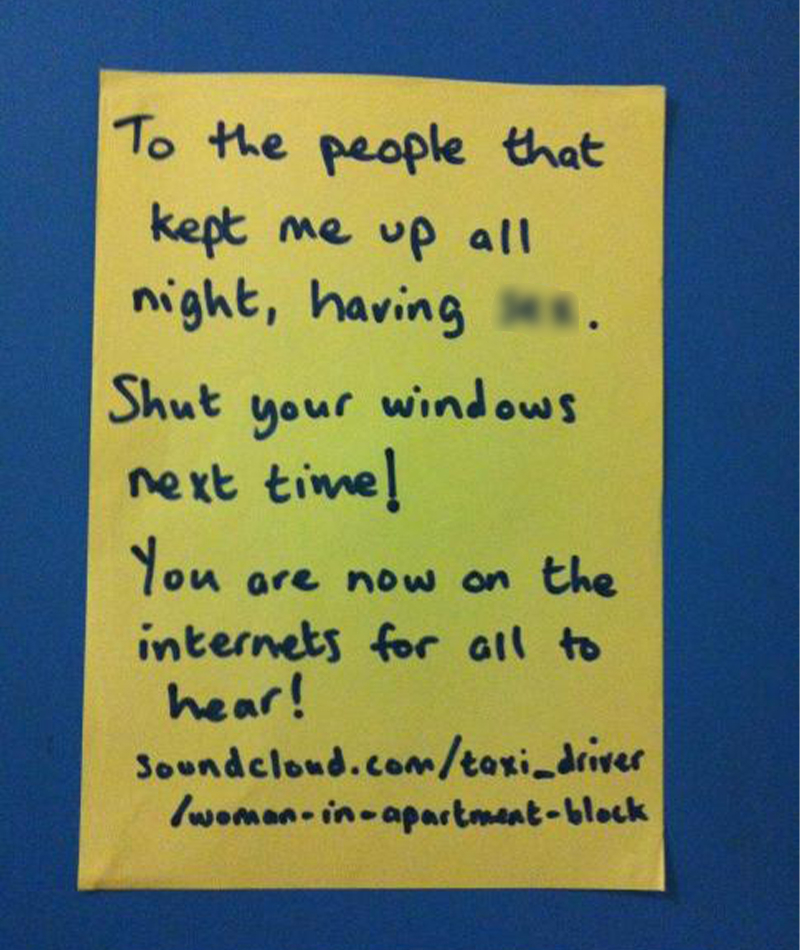 To the people that
kept me up all
night, having .
Shut your windows
next time!
You are now on the
internets for all to
hear!
soundcloud.com/taxi_driver
/woman-in-apartment-block